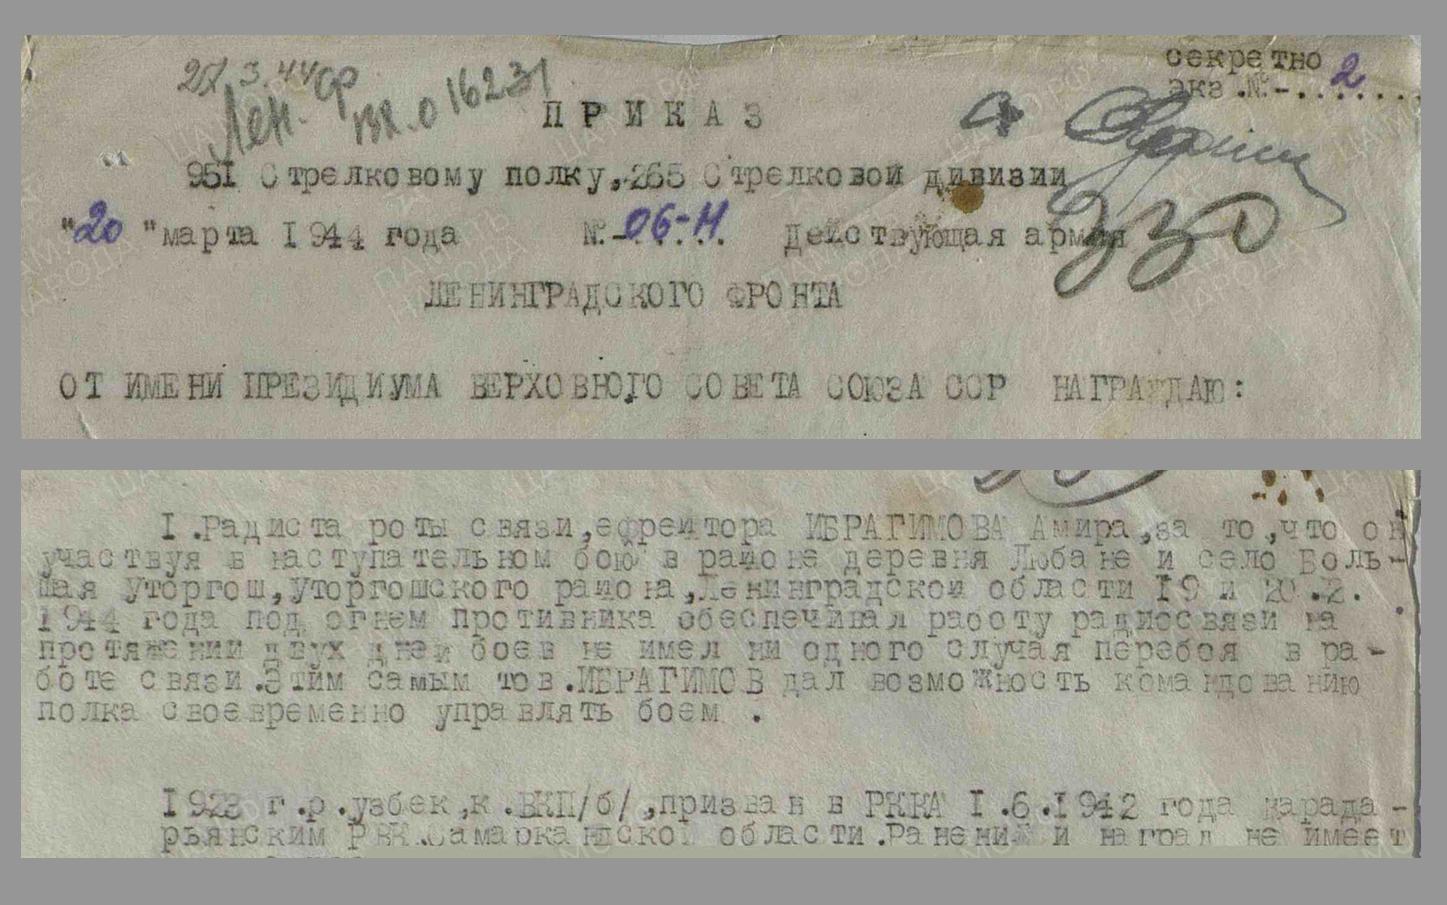 секретно
экз.№-..2....
25/3.44 ср
Лен. вх.016231
П Р И К А З
951 Стрелковому полку,-265 Стрелковой дивизии
"20 "марта 1944 года №.-06-Н.. Действующая армия
330
ЛЕНИНГРАДСКОГО ФРОНТА
ОТ ИМЕНИ ПРЕЗИДИУМА ВЕРХОВНОГО СОВЕТА СОЮЗА ССР НАГРАЖДАЮ:
I.Радиста роты связи,ефрейтора ИБРАГИМОВА Амира,за то,что он
участвуя в наступательном бою в районе деревня Любане и село Боль-
шая Уторгош,Уторгошского района,Ленинградской области 19 и 20.2.
1944 года под огнем противника обеспечивал работу радиосвязи на
протяжении двух дней боев не имел ни одного случая перебоя в ра-
боте связи.Этим самым тов.ИБРАГИМОВ дал возможность командованию
полка своевременно управлять боем .
1923 г.р.узбек,к.ВКП/б/,призван в РККА 1.6.1942 года карада-
рьянским РВК.Самаркандской области.Ранений и наград не имеет